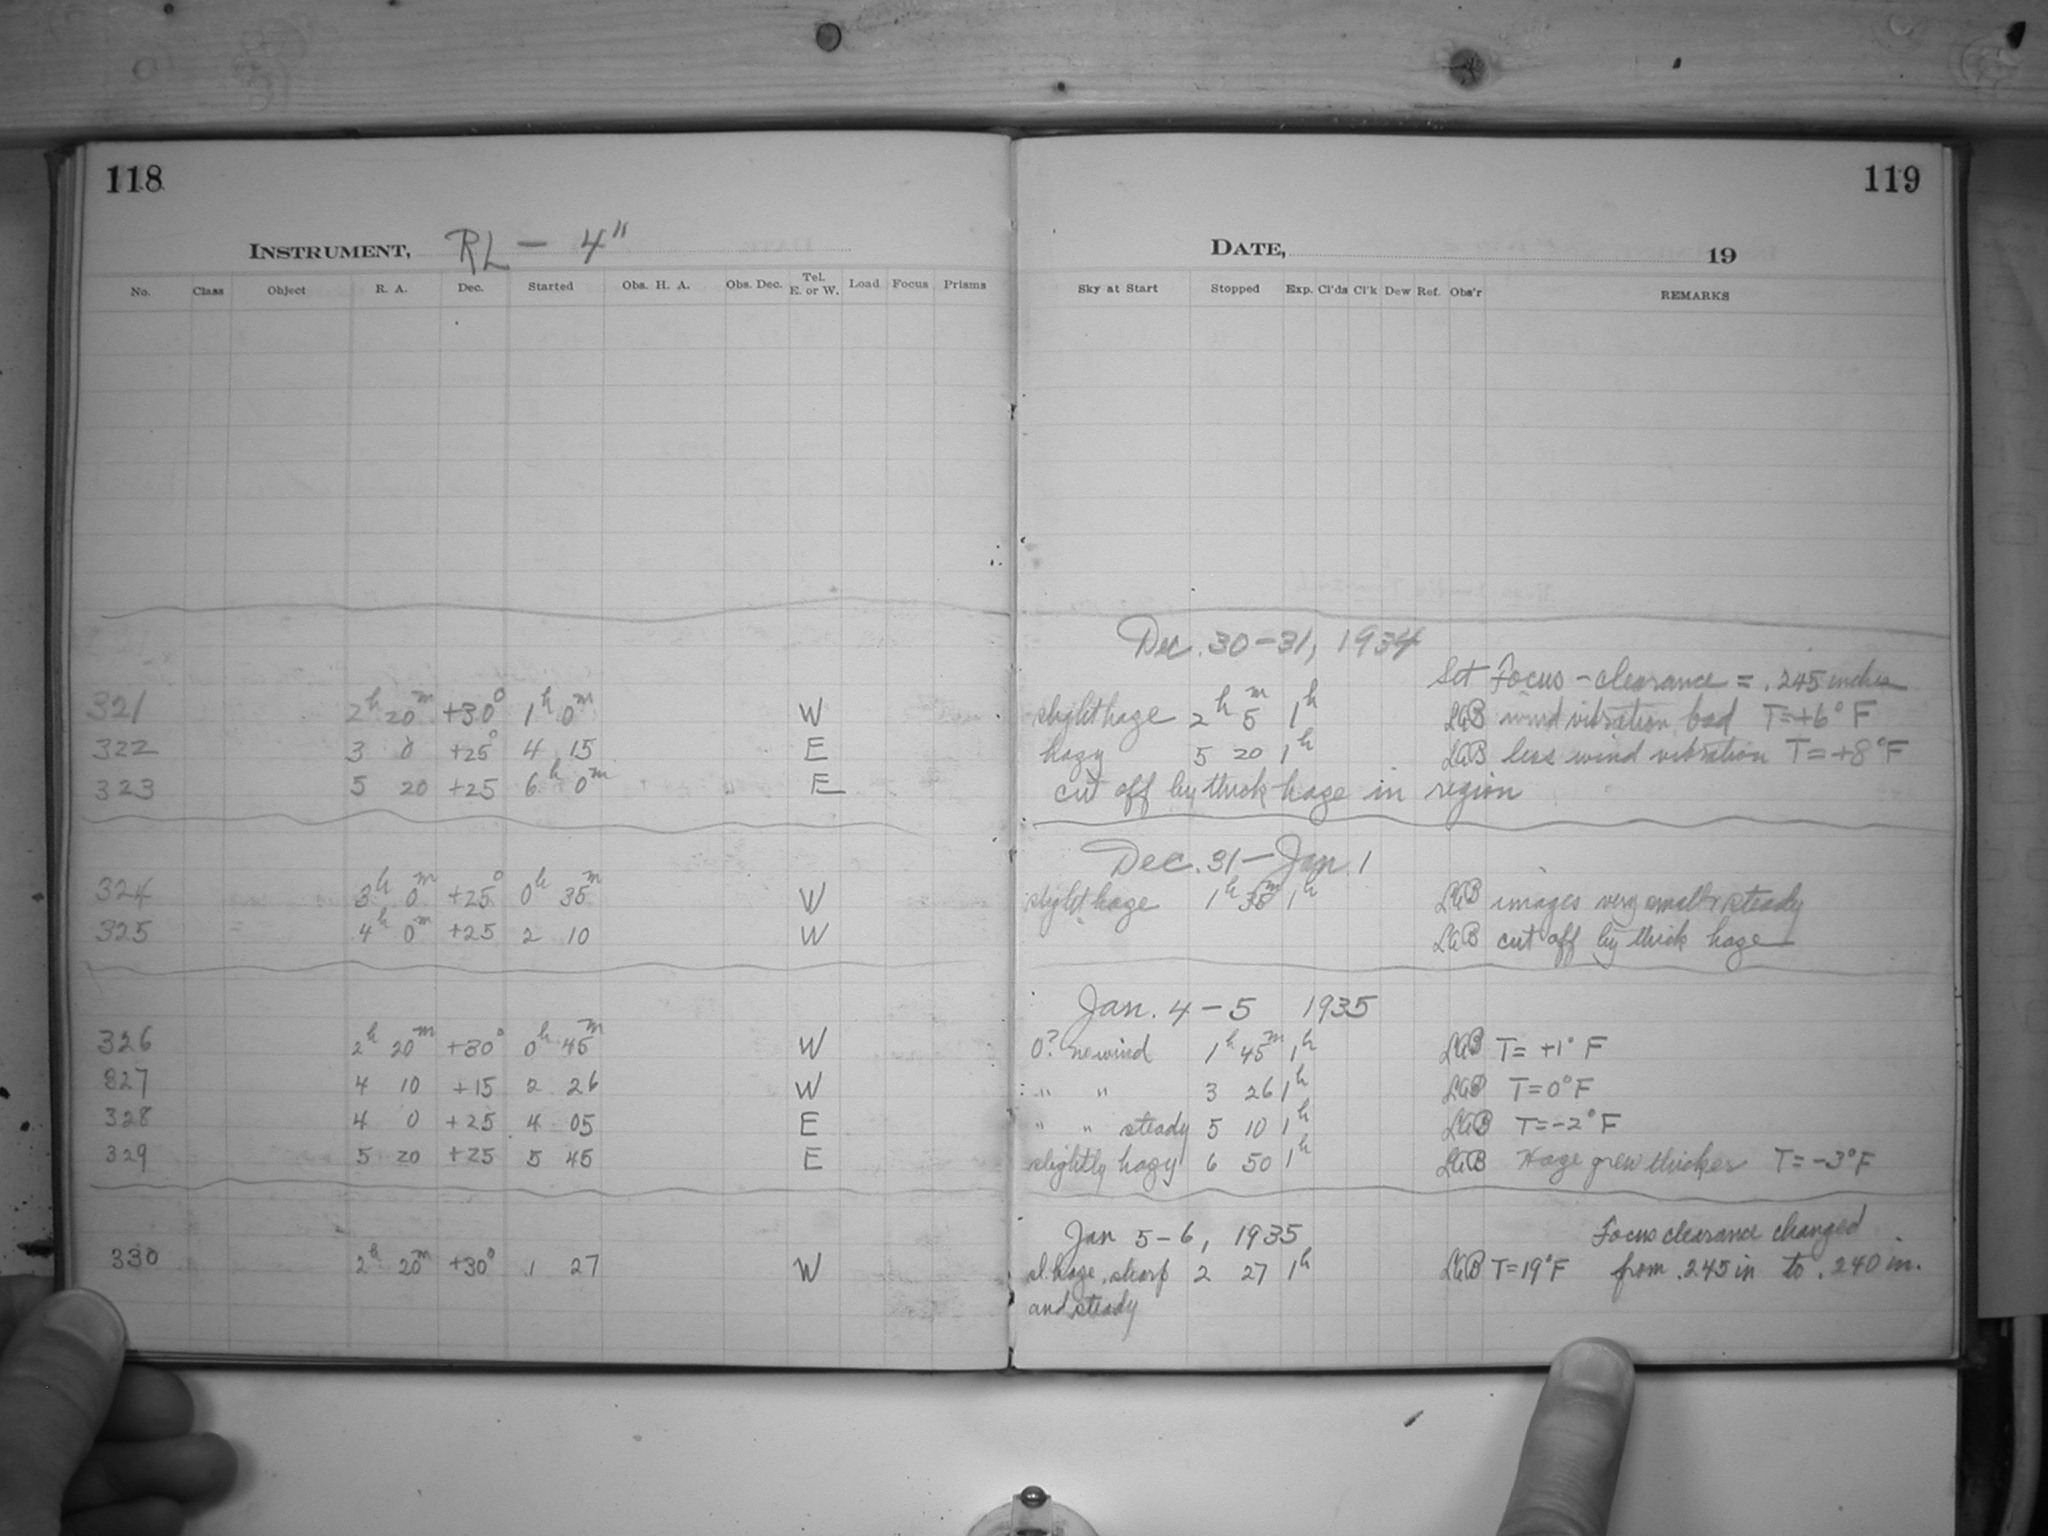 118
INSTRUMENT, RL - 4"
No. Class Object R. A. Dec. Started Obs. H. A. Obs. Dec. Tel. E. or W. Load Focus Prisms
321 2h 20m +30° 1h 0m W
322 3 0 +25° 4 15 E
323 5 20 +25 6h 0m E
324 3h 0m +25° 0h 35m W
325 4h 0m +25 2 10 W
326 2h 20m +30° 0h 45m W
327 4 10 +15 2 26 W
328 4 0 +25 4 05 E
329 5 20 +25 5 45 E
330 2h 20m +30° 1 27 W
119
DATE, 19
Sky at Start Stopped Exp. Cl'ds Cl'k Dew Ref. Obs'r REMARKS
Dec. 30-31, 1934
Set Focus - clearance = .245 inches
slight haze 2h 5m 1h LAB wind vibration bad T=+6° F
hazy 5 20 1h LAB less wind vibration T=+8°F
cut off by thick haze in region
Dec. 31 - Jan. 1
slight haze 1h 35m 1h LAB images very small + steady
LAB cut off by thick haze
Jan. 4-5 1935
0? no wind 1h 45m 1h LAB T= +1° F
" " 3 26 1h LAB T=0°F
" " steady 5 10 1h LAB T=-2° F
slightly hazy 6 50 1h LAB Haze grew thicker T=-3°F
Jan 5-6, 1935 Focus clearance changed
sl. haze, sharp 2 27 1h LAB T=19°F from .245 in to .240 in.
and steady